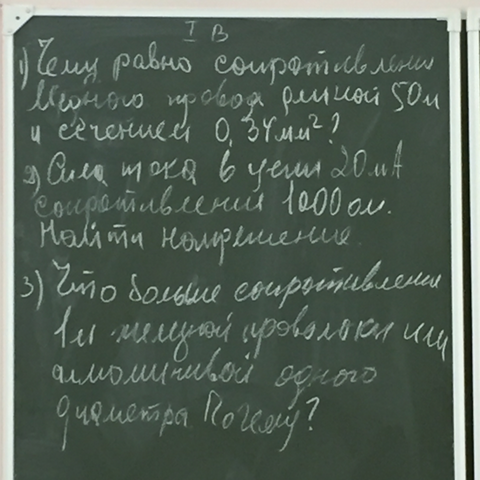 I В
1) Чему равно сопротивление
Медного провод длиной 50м
и сечением 0,34мм²?
2) Сила тока в цепи 20мА
сопротивление 1000 ом.
Найти напряжение
3) Что больше сопротивление
1м медной проволоки или
алюминивой одного
диаметра Почему?